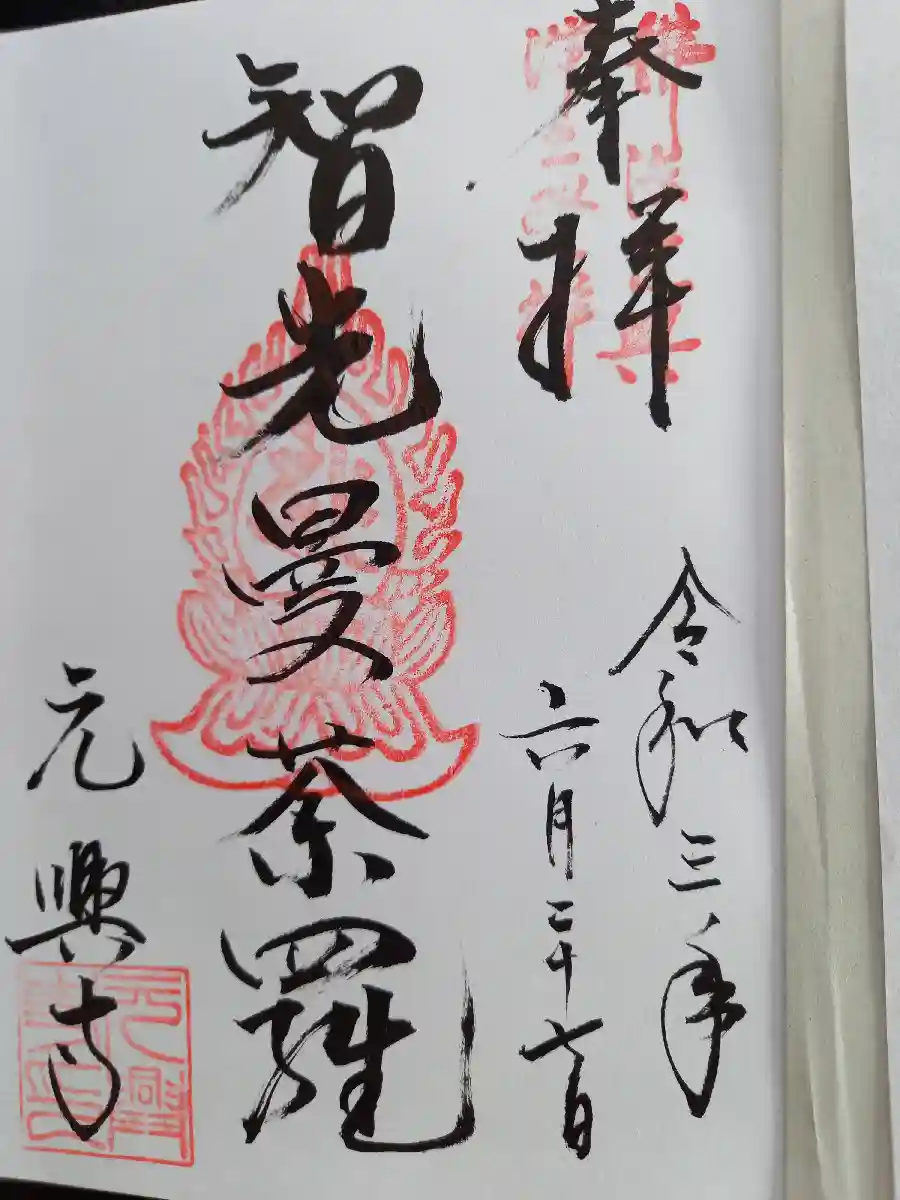 奉拝
令和三年
六月二十七日
智光曼荼羅
元興寺